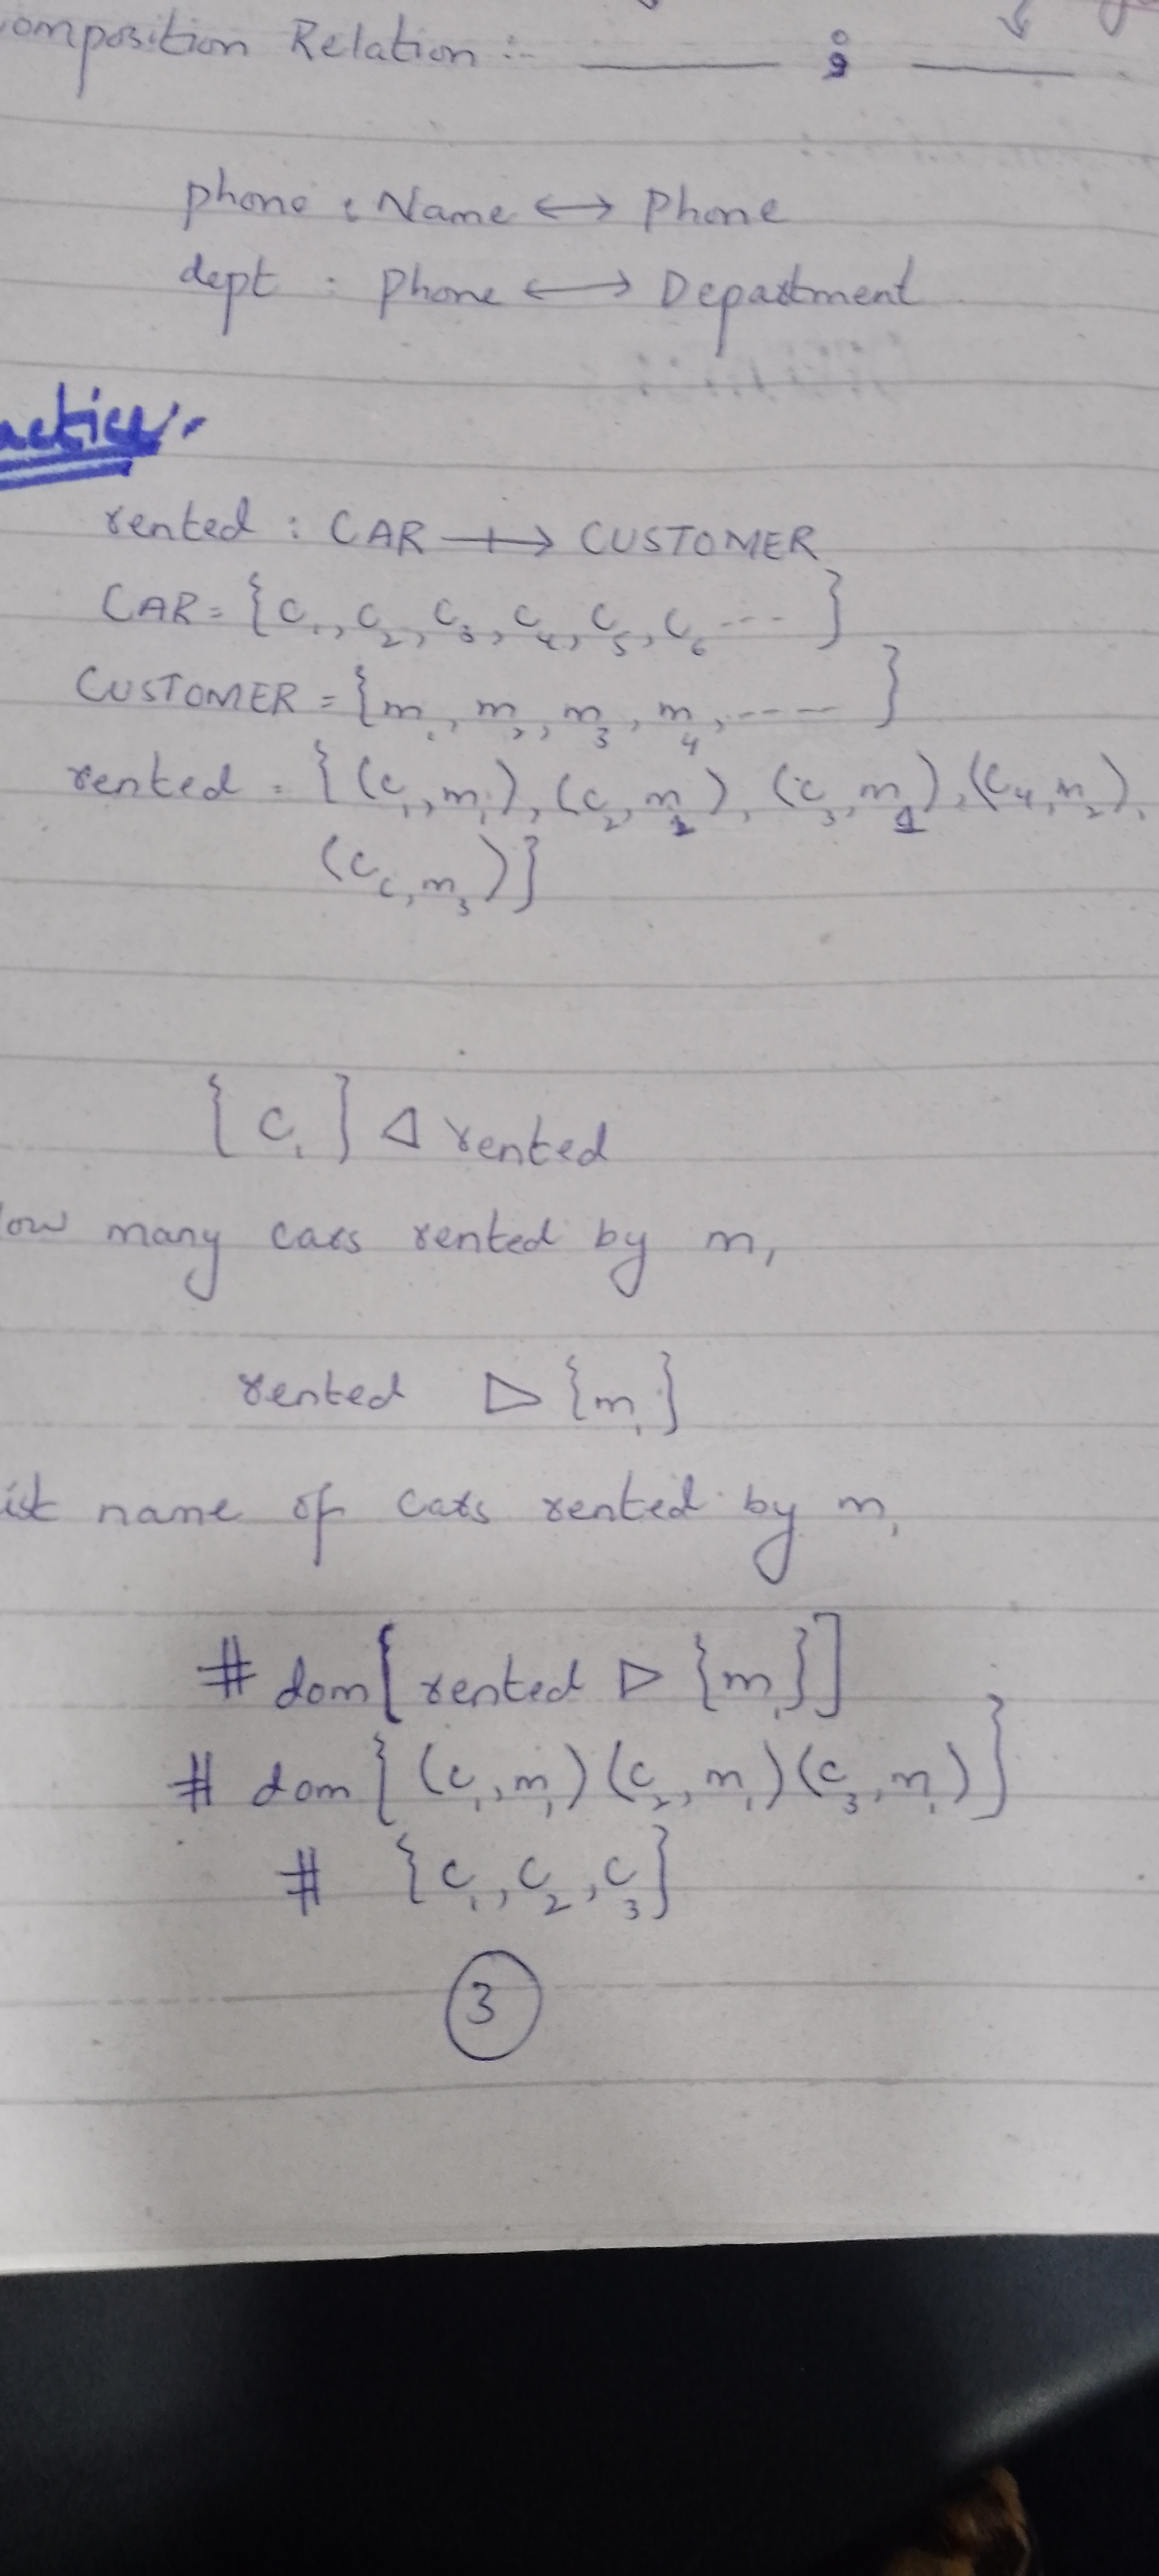 omposition Relation :- ______ ⨾ ______
phone : Name ↔ Phone
dept : Phone ↔ Department
actice:-
rented : CAR ⇸ CUSTOMER
CAR = {c₁, c₂, c₃, c₄, c₅, c₆ --- }
CUSTOMER = {m₁, m₂, m₃, m₄, ---- }
rented = {(c₁, m₁), (c₂, m₁), (c₃, m₁), (c₄, m₂),
(c₆, m₃)}
{c₁} ◁ rented
ow many cars rented by m₁
rented ▷ {m₁}
ist name of cars rented by m₁
# dom[rented ▷ {m₁}]
# dom{(c₁, m₁)(c₂, m₁)(c₃, m₁)}
# {c₁, c₂, c₃}
3